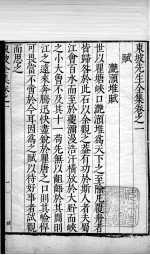 東坡先生全集卷之一
賦
灩澦堆賦
世以瞿唐峽口灩澦堆爲天下之至險凡覆舟者
皆歸咎於此石以余觀之蓋有功於斯人者夫蜀
江會百水而至於夔瀰漫浩汗橫放於大野而峽
之大小曾不及其十一苟先無以齟齬於其間則
江之遠來奔騰迅快盡銳於瞿唐之口則其嶮悍
可畏當不啻於今耳因爲之賦以待好事者試觀
而思之
東坡全集卷之一